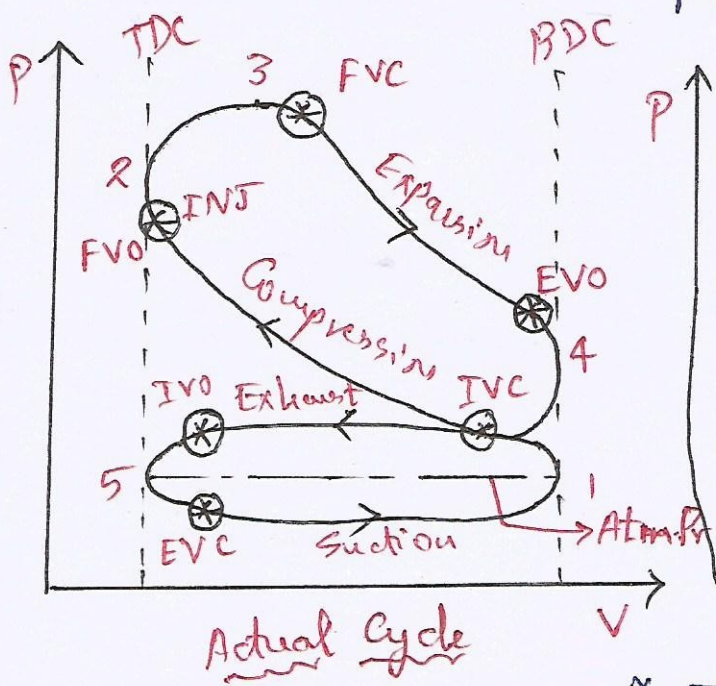 TDC
BDC
P
3
FVC
P
2
INJ
FVO
Expansion
EVO
Compression
4
IVO
Exhaust
IVC
5
1
EVC
Suction
Atm.Pr
V
Actual Cycle